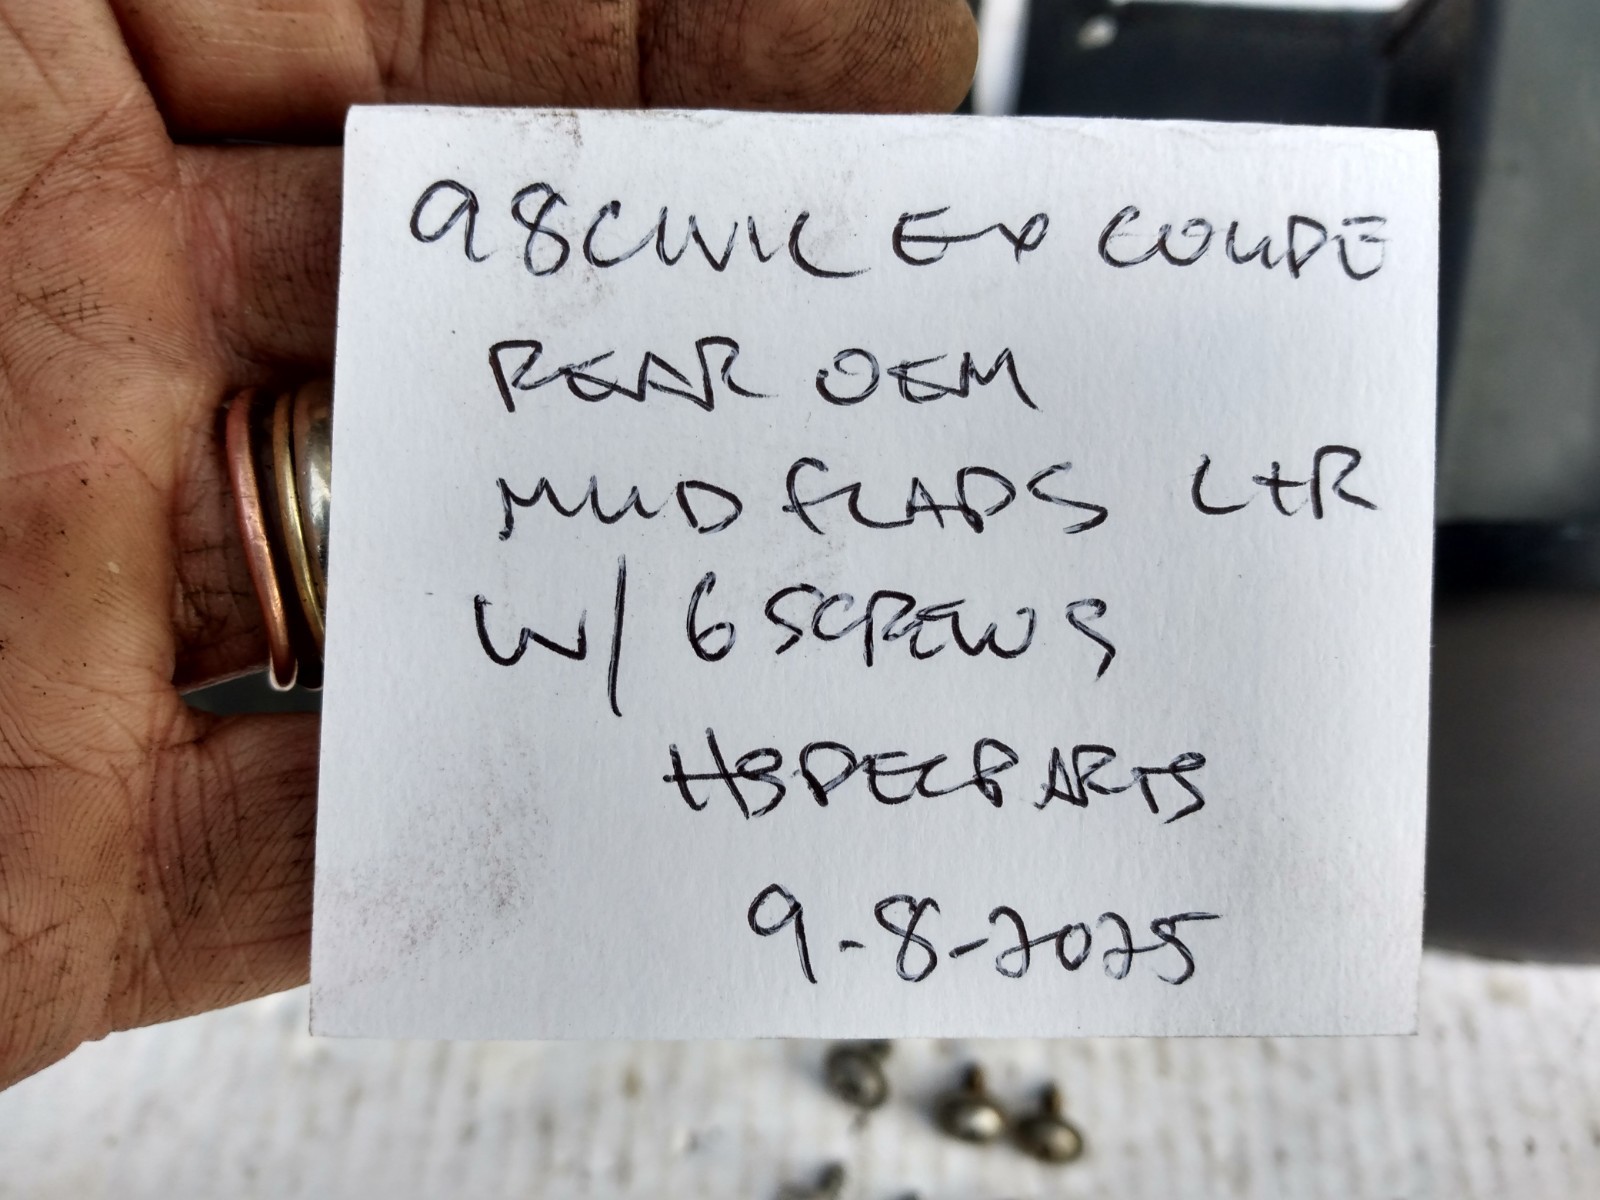 98 CIVIC EX COUPE
REAR OEM
MUD FLAPS L+R
W/ 6 SCREWS
HSPECPARTS
9-8-2025